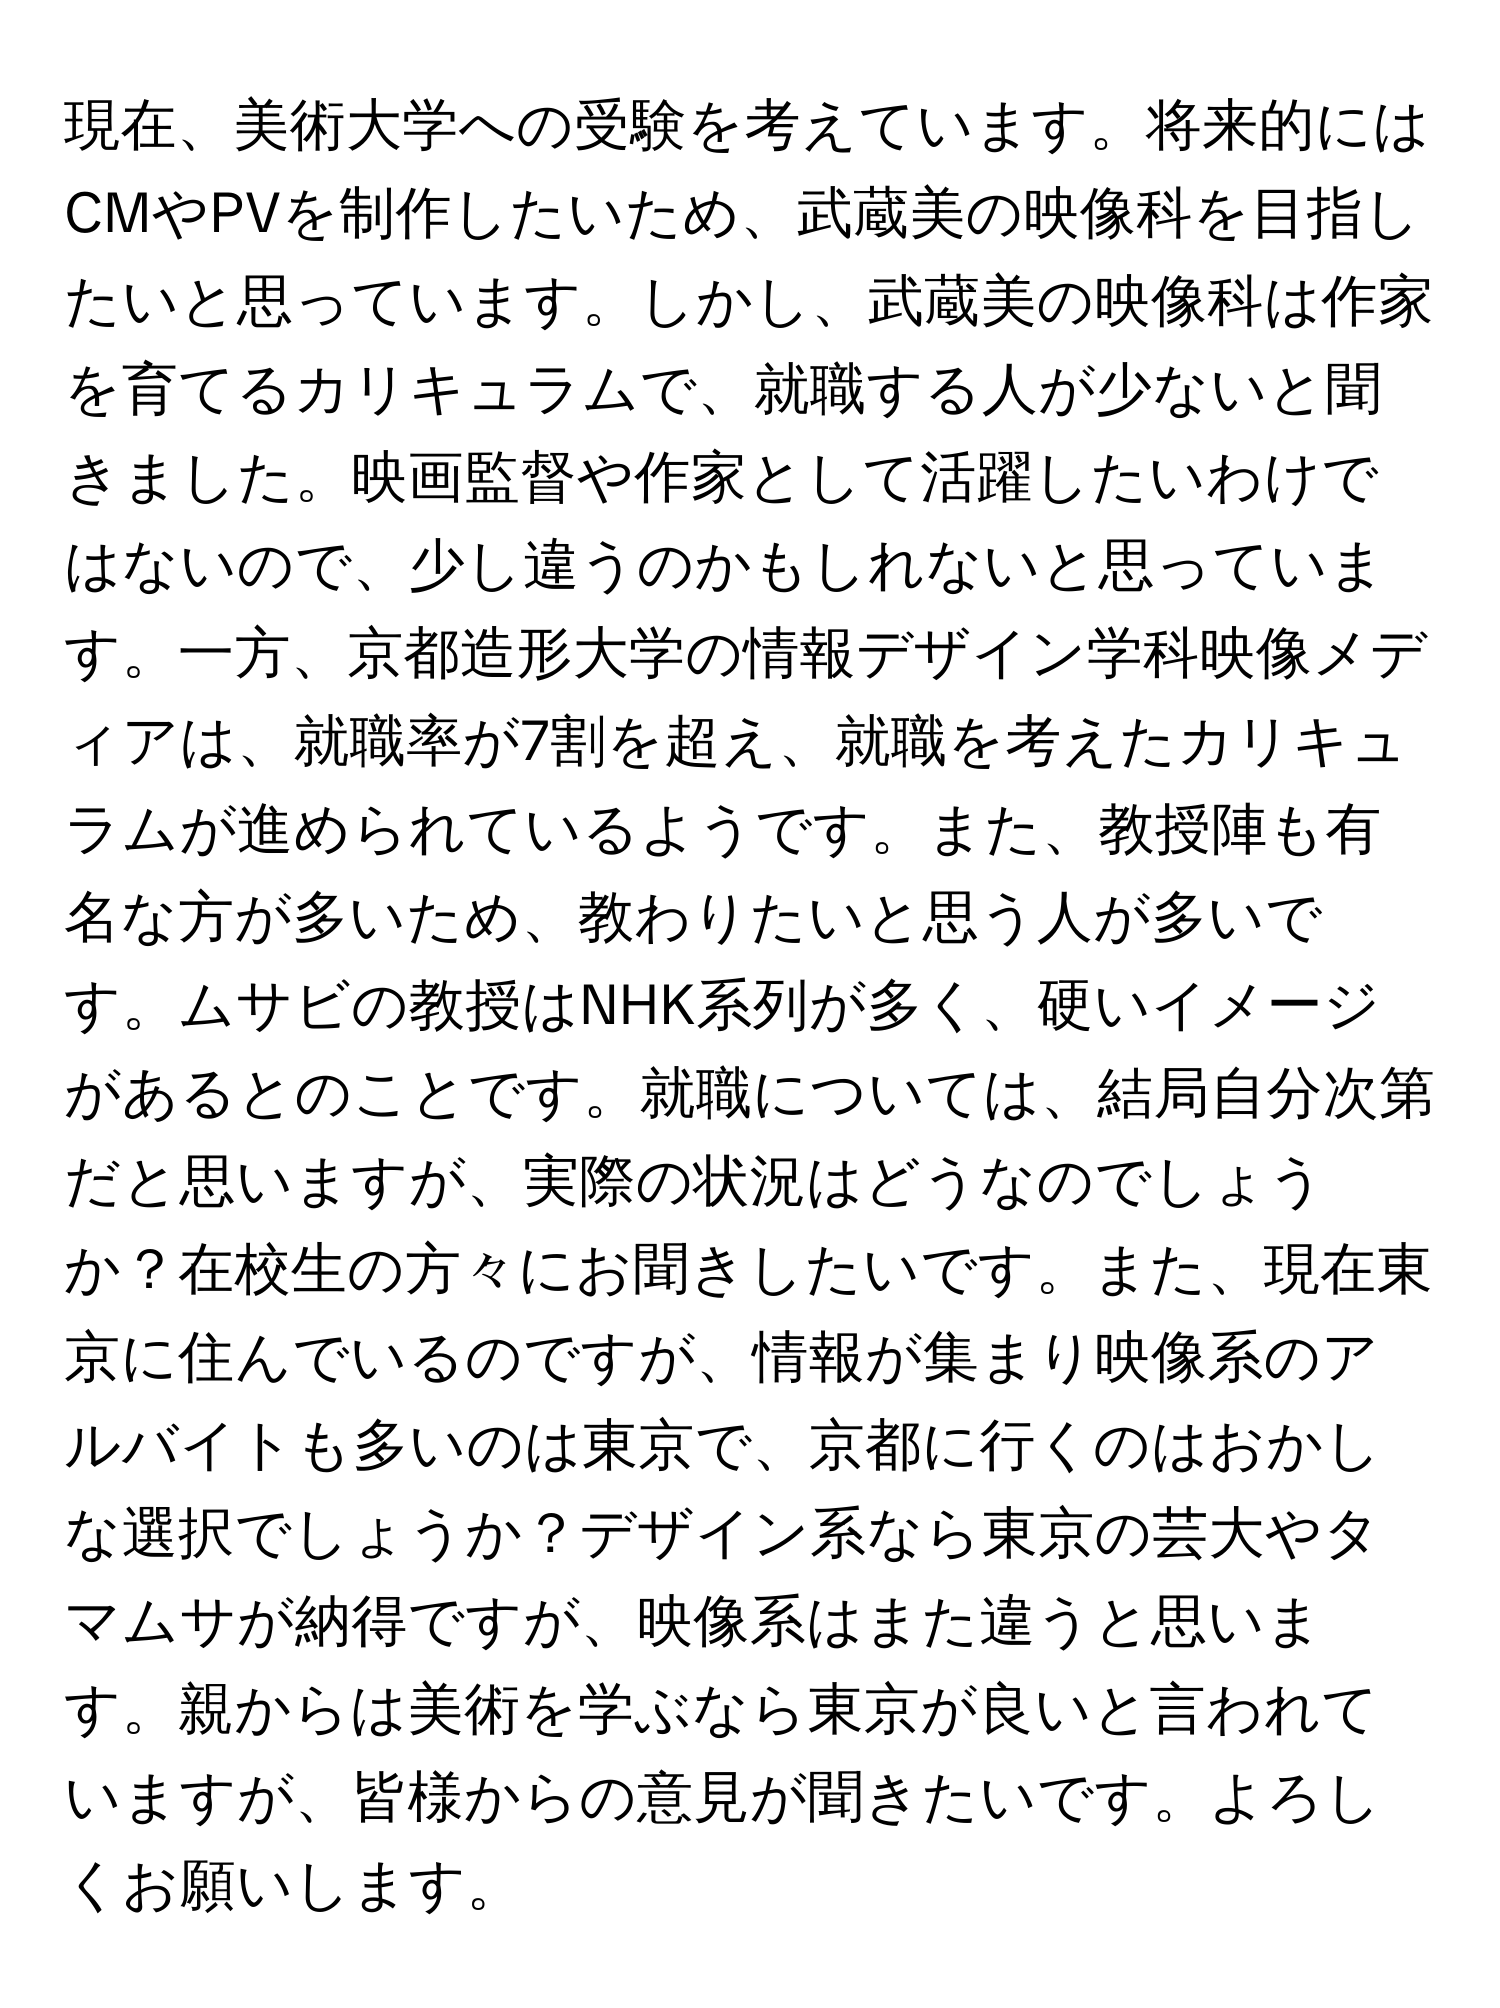 現在、美術大学への受験を考えています。将来的には
CMやPVを制作したいため、武蔵美の映像科を目指し
たいと思っています。しかし、武蔵美の映像科は作家
を育てるカリキュラムで、就職する人が少ないと聞
きました。映画監督や作家として活躍したいわけで
はないので、少し違うのかもしれないと思っていま
す。一方、京都造形大学の情報デザイン学科映像メデ
ィアは、就職率が7割を超え、就職を考えたカリキュ
ラムが進められているようです。また、教授陣も有
名な方が多いため、教わりたいと思う人が多いで
す。ムサビの教授はNHK系列が多く、硬いイメージ
があるとのことです。就職については、結局自分次第
だと思いますが、実際の状況はどうなのでしょう
か？在校生の方々にお聞きしたいです。また、現在東
京に住んでいるのですが、情報が集まり映像系のア
ルバイトも多いのは東京で、京都に行くのはおかし
な選択でしょうか？デザイン系なら東京の芸大やタ
マムサが納得ですが、映像系はまた違うと思いま
す。親からは美術を学ぶなら東京が良いと言われて
いますが、皆様からの意見が聞きたいです。よろし
くお願いします。